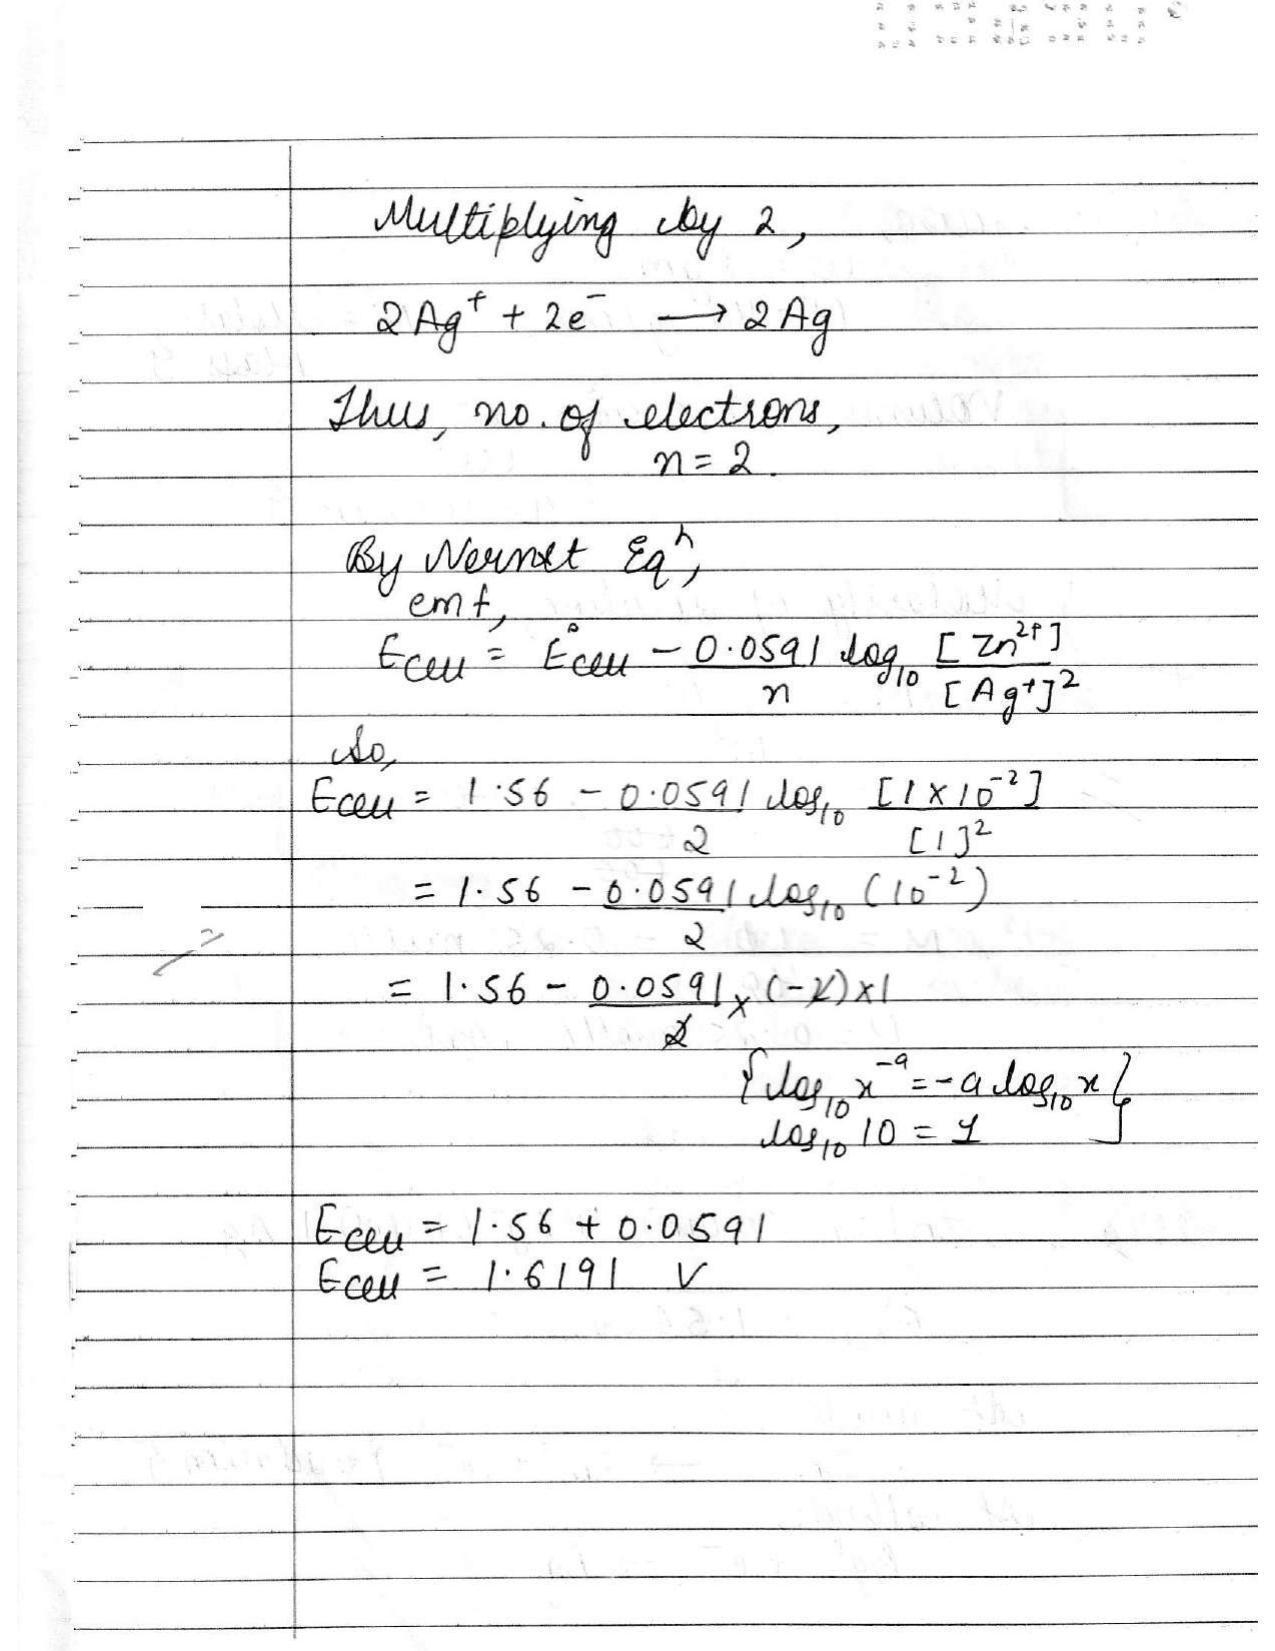 Multiplying by 2,
2Ag⁺ + 2e⁻ → 2Ag
Thus, no. of electrons,
n = 2.
By Nernst Eqⁿ,
emf,
Ecell = E°cell − 0.0591/n log₁₀ [Zn²⁺]/[Ag⁺]²
So,
Ecell = 1.56 − 0.0591/2 log₁₀ [1×10⁻²]/[1]²
= 1.56 − 0.0591/2 log₁₀ (10⁻²)
= 1.56 − 0.0591/2 × (−2) × 1
{log₁₀ x⁻ᵃ = −a log₁₀ x
log₁₀ 10 = 1}
Ecell = 1.56 + 0.0591
Ecell = 1.6191 V